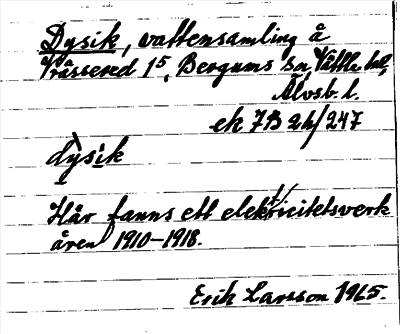 Dysik, vattensamling å
Vråssered 1⁵, Bergums sn, Vättle hd,
Älvsb. l.
ek 7B 2h/247
dỳsik
Här fanns ett elektricitetsverk
åren 1910–1918.
Erik Larsson 1965.